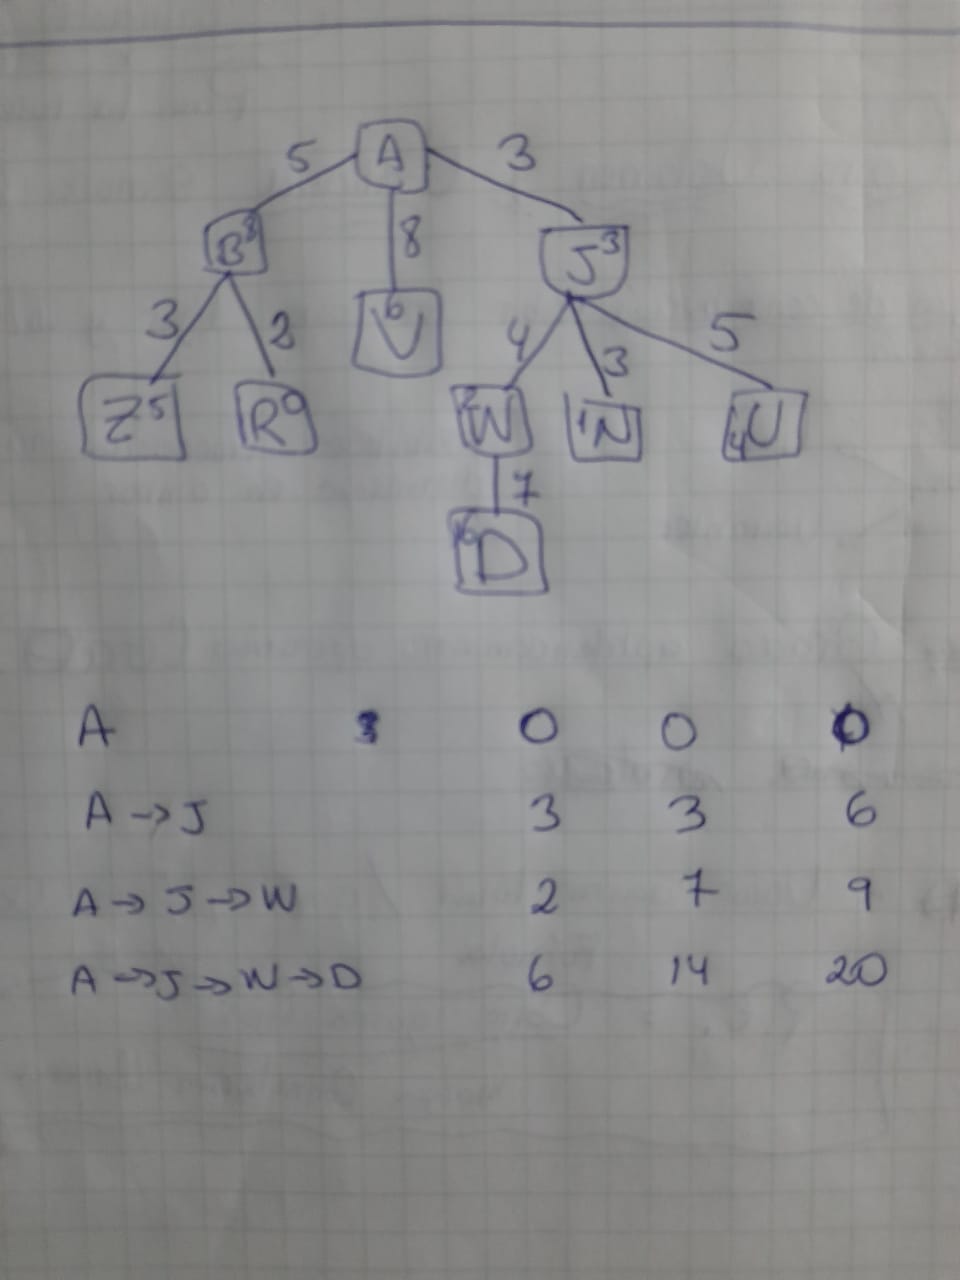 A
5 3
8
B 8
J 3
V 6
3 2
4 3 5
Z 5 R 9 2 W 1 N 4 U
7
6 D
A 0 0 0
A → J 3 3 6
A → J → W 2 7 9
A → J → W → D 6 14 20